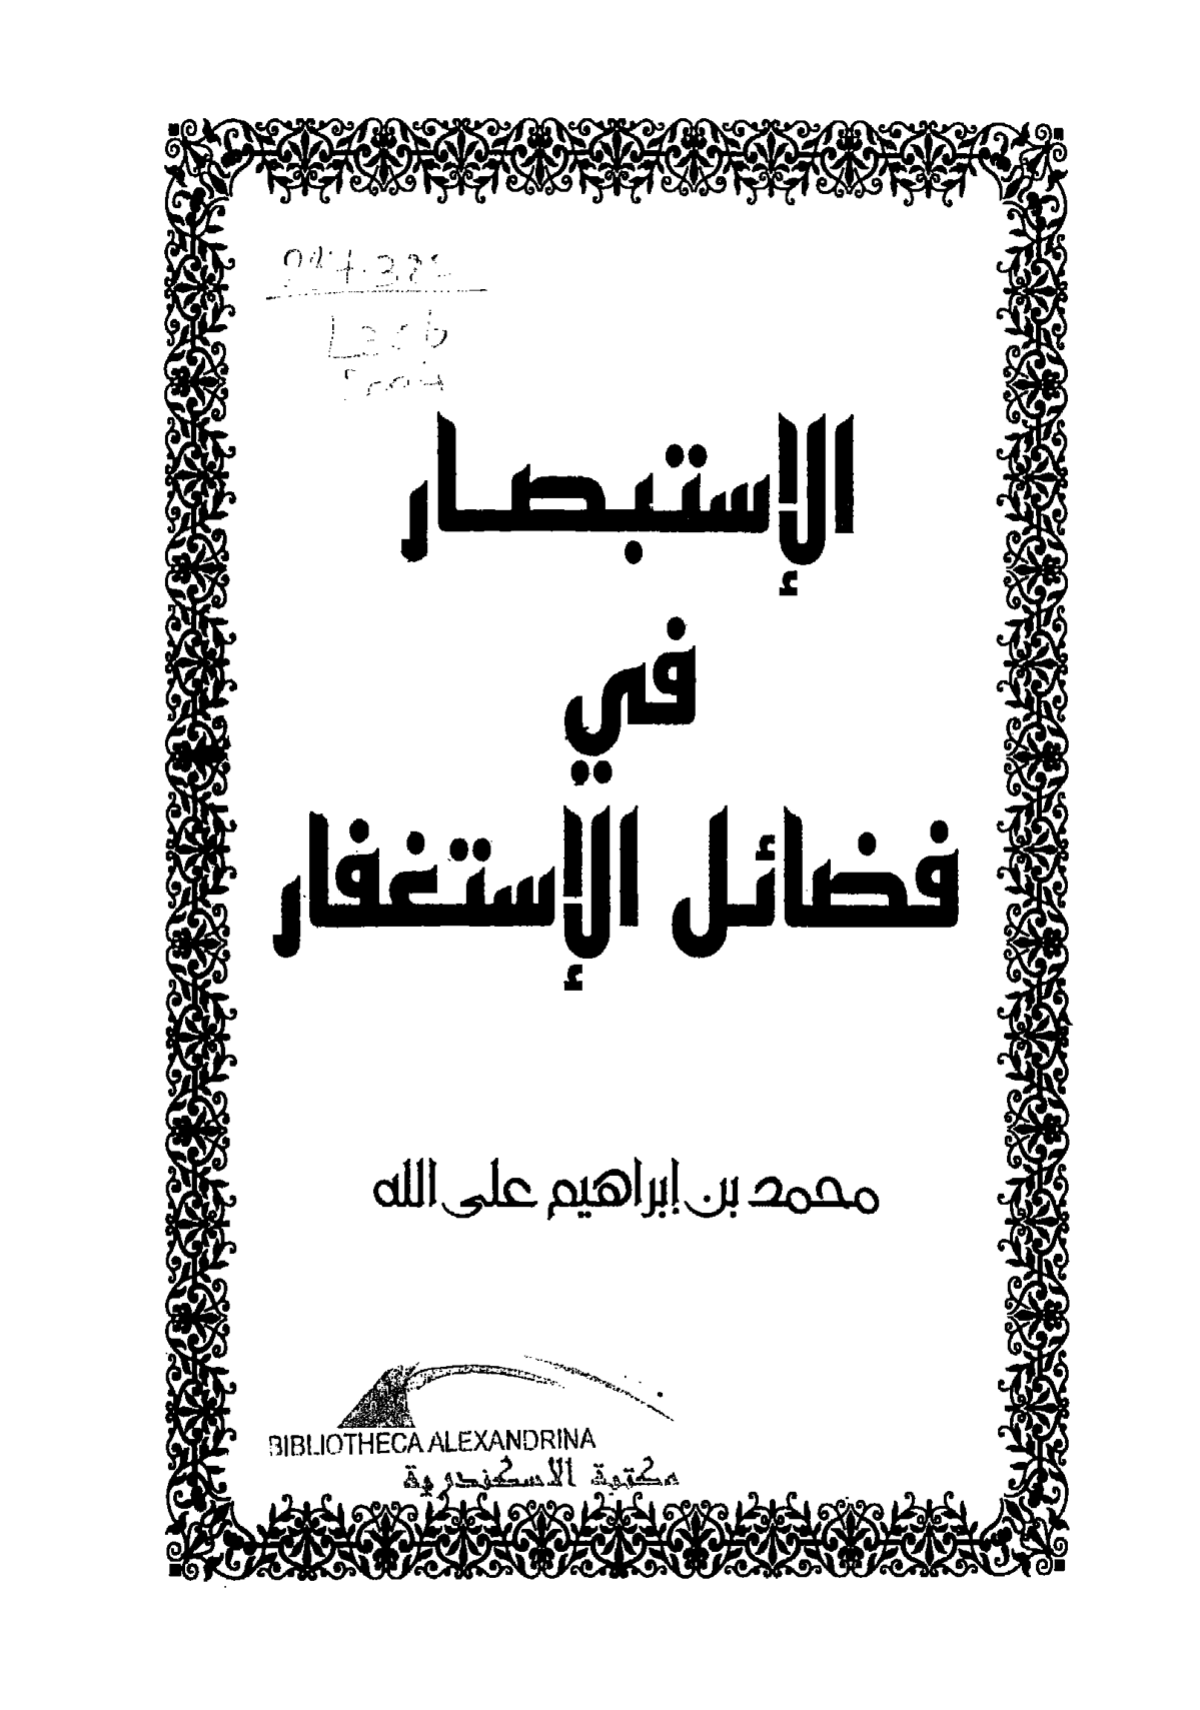 الإستبصار
في
فضائل الإستغفار
محمد بن إبراهيم على الله
BIBLIOTHECA ALEXANDRINA
مكتبة الاسكندرية